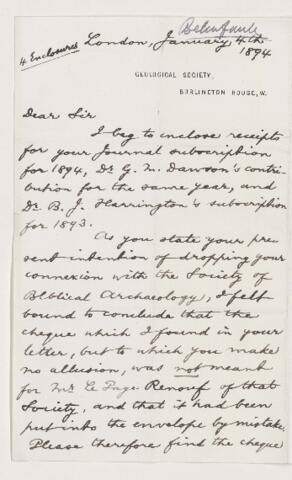 Belinfante
4 Enclosures
London, January 4th
1894
GEOLOGICAL SOCIETY,
BURLINGTON HOUSE, W.
Dear Sir
I beg to inclose receipts
for your Journal subscription
for 1894, Dr. G. M. Dawson's contri-
bution for the same year, and
Dr. B. J. Harrington's subscription
for 1893.
As you state your pre-
sent intention of dropping your
connexion with the Society of
Biblical Archaeology, I felt
bound to conclude that the
cheque which I found in your
letter, but to which you make
no allusion, was not meant
for Mr Le Page Renouf of that
Society, and that it had been
put into the envelope by mistake.
Please therefore find the cheque